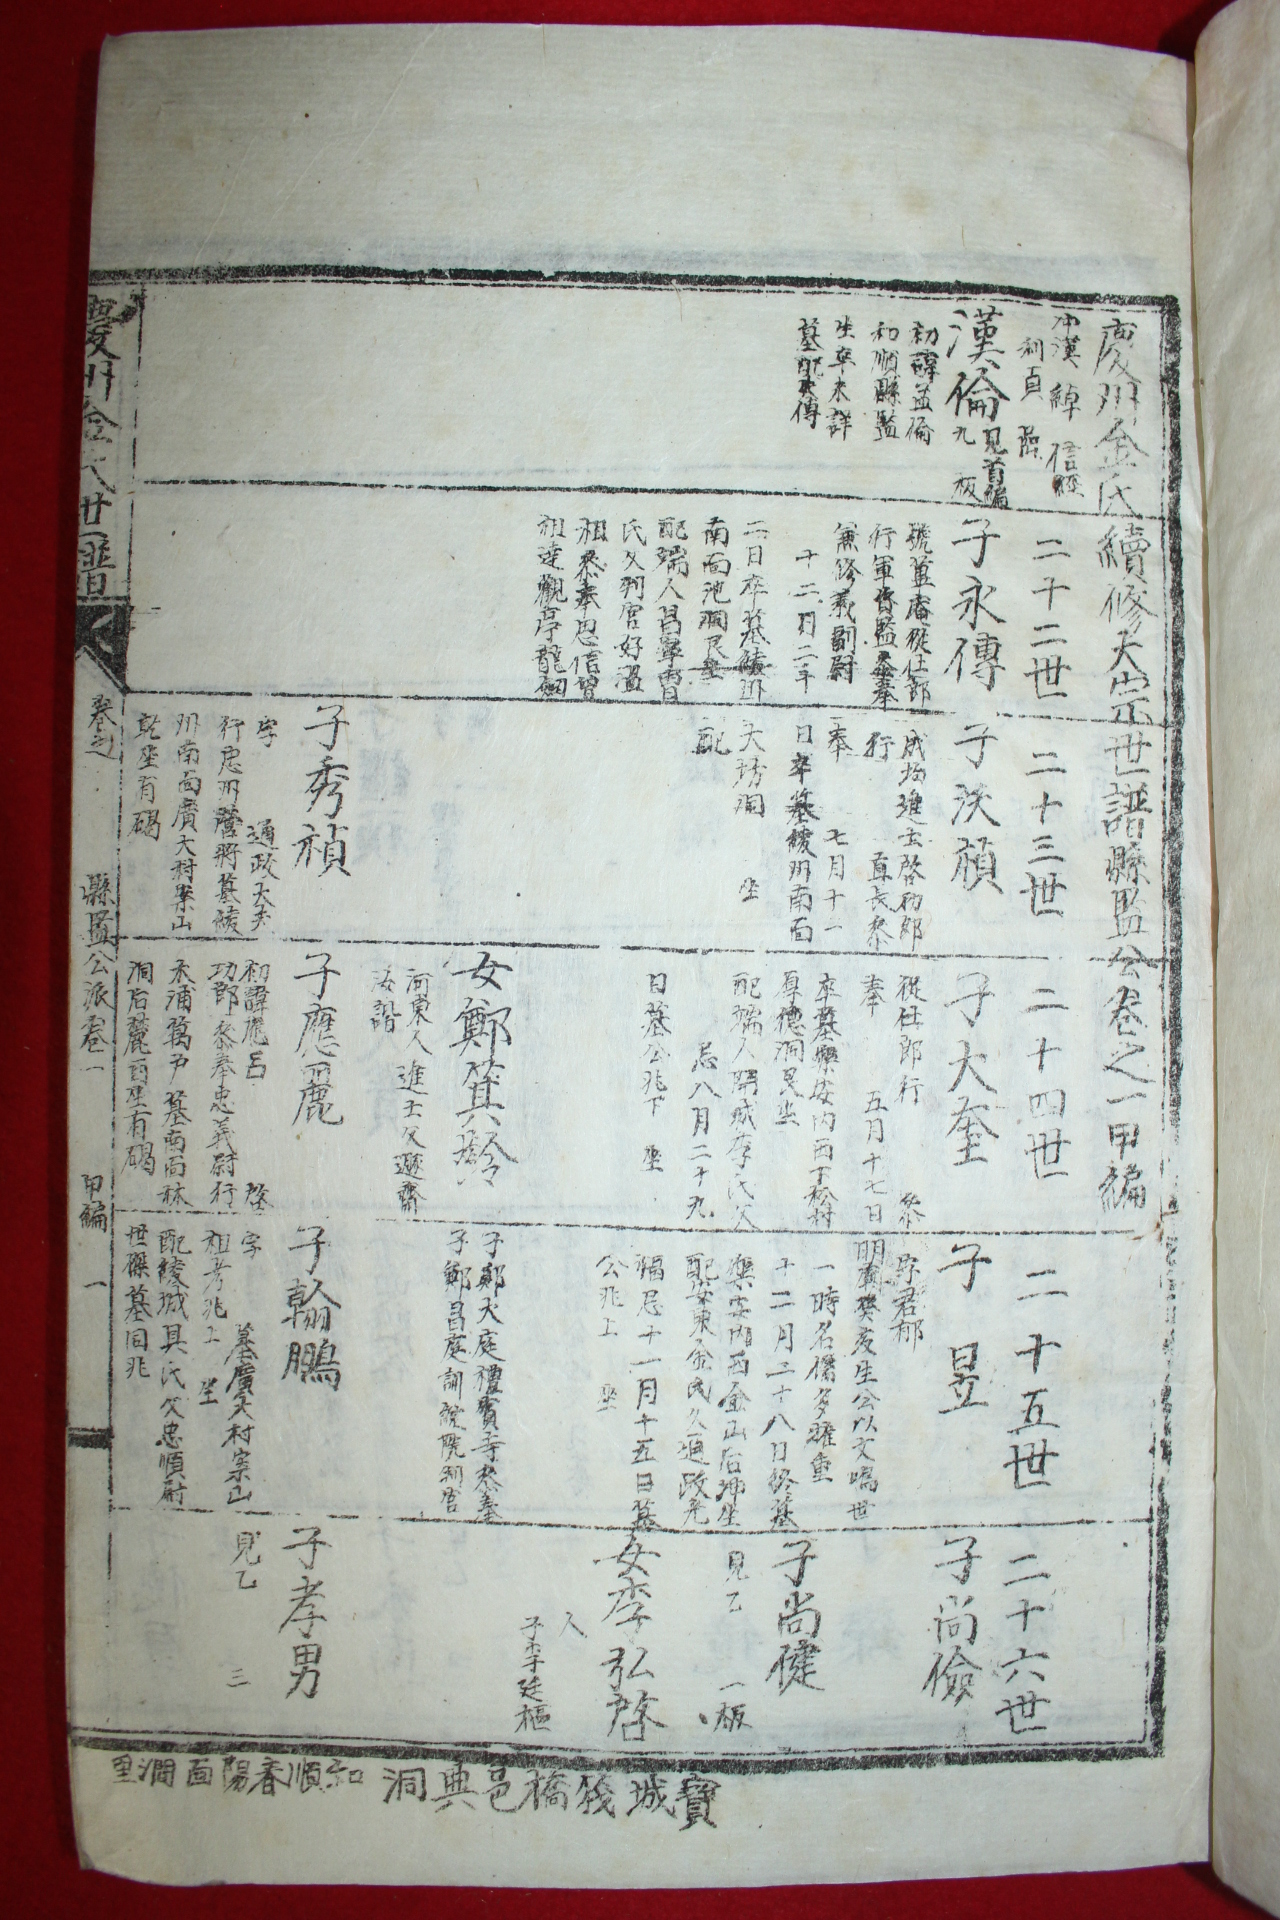 慶州金氏續修大宗世譜縣監公卷之一甲編
漢倫
見首編
九板
初諱益倫
和順縣監
生卒未詳
墓配失傳
二十二世
子永傳
號蓋庵從仕郎
行軍資監參奉
兼修義副尉
十二月二十
二日卒墓綾州
南面池洞艮坐
配端人昌寧曺
氏父判官好溫
祖參奉思信曾
祖達觀亭龍細
二十三世
子沃禎
成均進士啓功郎
行 直長參
奉 七月十一
日卒墓綾州南面
大塲洞 坐
配
子秀禎
字 通政大夫
行忠州營將墓綾
州南面廣大村案山
乾坐有碣
二十四世
子大奎
從仕郎行 參
奉 五月十七日
卒墓樂安內面下松村
厚德洞艮坐
配端人開城李氏父
忌八月二十九
日墓公兆下 坐
女鄭箕齡
河東人 進士父遯齋
汝諧
子應麗
初諱應呂 啓
功郎參奉忠義尉行
洞后麓酉坐有碣
二十五世
子昱
字君郁
明廟癸亥生公以文鳴世
一時名儒多推重
十二月二十八日終墓
樂安內面金山后坤坐
配安東金氏父通政允
福忌十一月十五日墓
公兆上 坐
子鄭大庭禮賓寺參奉
子鄭昌庭訓鍊院判官
子翰鵬
字 墓廣大村案山
祖考兆上 坐
配綾城具氏父忠順尉
世傑墓同兆
二十六世
子尚儉
子尚健
見乙 一板
女李弘啓
人
子李廷樞
子孝男
見乙 三
慶州金氏世譜
卷之
縣監公派卷一
甲編
一
寶城筏橋邑典洞
和順春陽面澗里